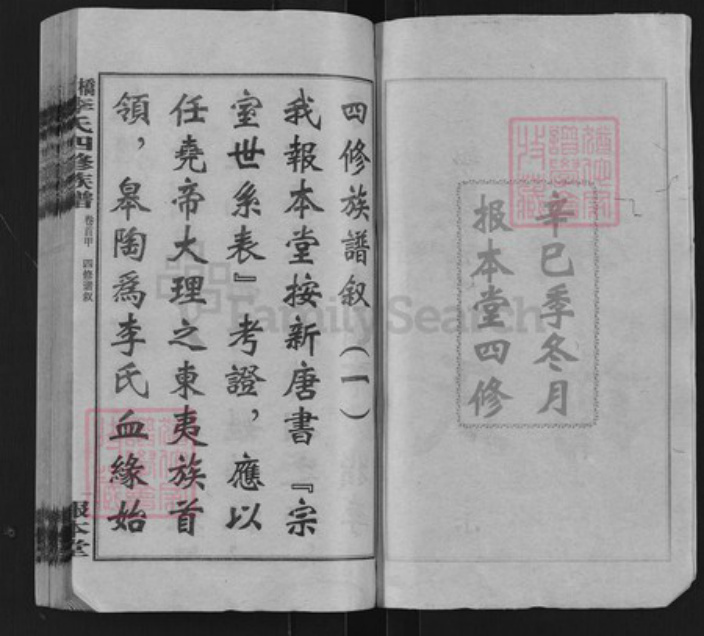 辛巳季冬月
报本堂四修
四修族譜叙（一）
我報本堂按新唐書『宗
室世系表』考證，應以
任堯帝大理之東夷族首
領，皋陶爲李氏血緣始
橋李氏四修族譜
卷首甲 四修譜叙
報本堂
FamilySearch